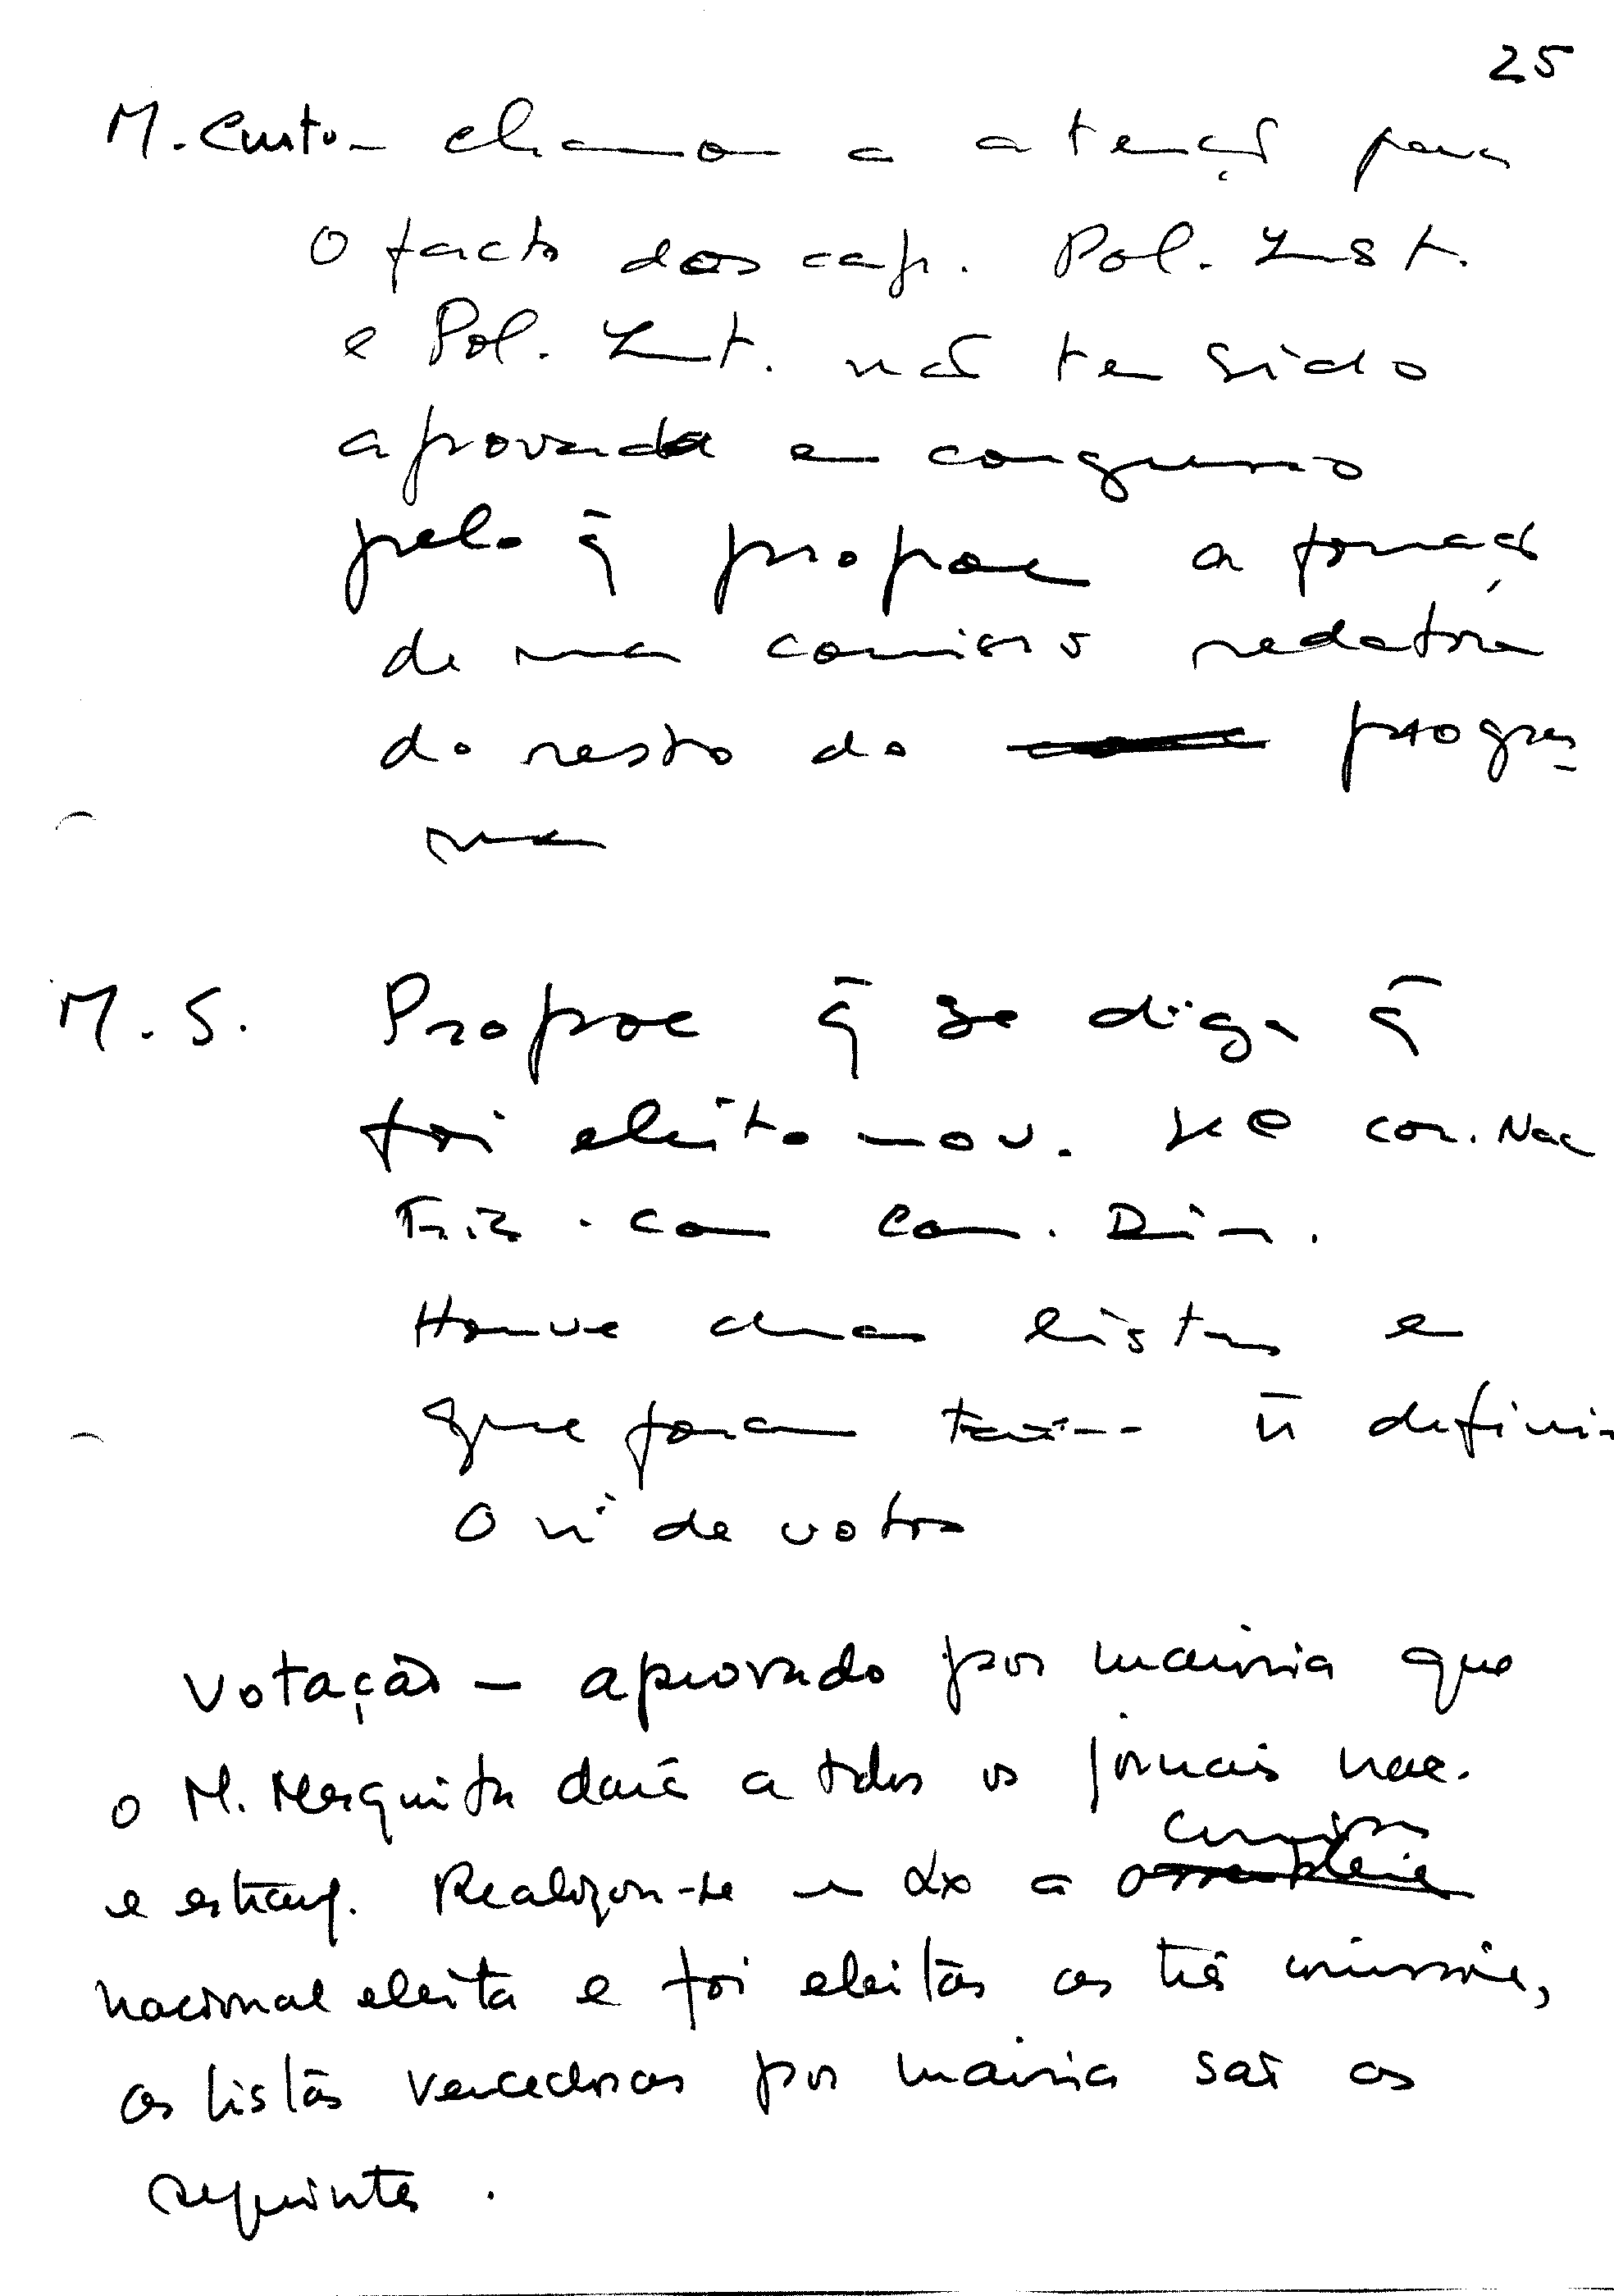 25
M. Custo - chamou a atenção para
o facto dos cap. Pol. Inst.
e Pol. Int. não ter sido
aprovada em congresso
pelo q̄ propoe a formação
de uma comissão redatora
do resto do progra-
ma
M. S. Propoe q̄ se diga q̄
foi eleito nov. com. Nac
com Com. Dir.
Houve duas listas e
que foram n̄ definir
o nº de votos
Votação - aprovado por maioria que
o M. Mesquita dará a todos os jornais nac.
e estrang. Realizou-se em Lx a comissão
nacional eleita e foi eleitas as três comissões,
as listas vencedoras por maioria são as
seguintes.